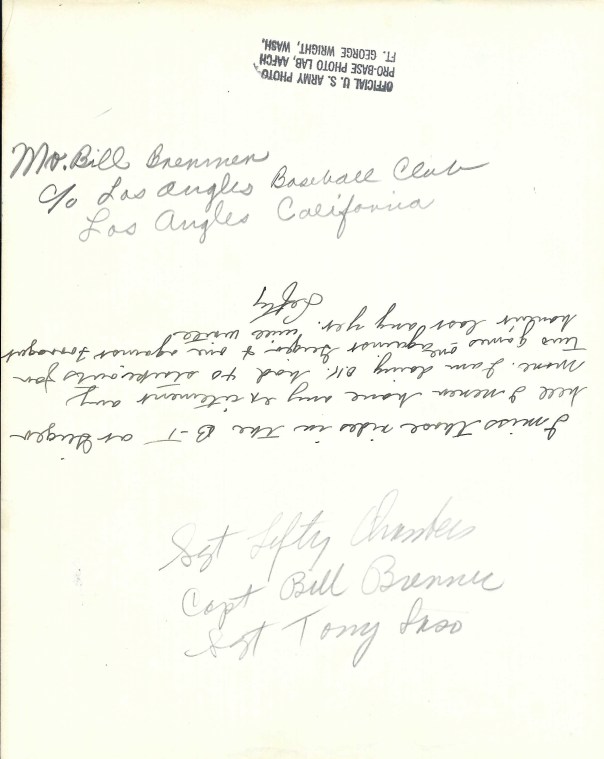 OFFICIAL U. S. ARMY PHOTO
PRO-BASE PHOTO LAB, AAFCH
FT. GEORGE WRIGHT, WASH.
Mr. Bill Brenner
c/o Los Angles Baseball Club
Los Angles California
I miss those rides in the B-T at Geiger
hell I never have any excitement any
more. I am doing O.K. had 40 strikeouts for
two games one against Geiger & one against Farragut
havent lost any yet. will write
Lefty
Sgt Lefty Chambers
Capt Bill Brenner
Sgt Tony Saso